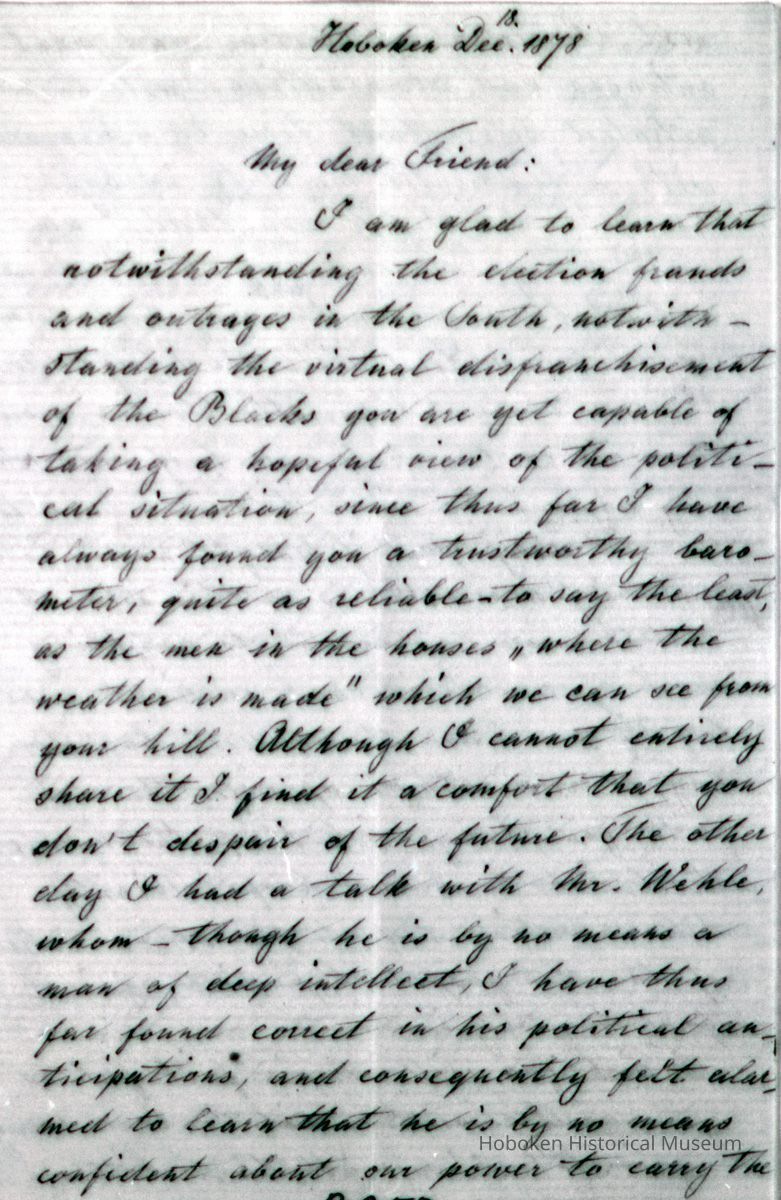 Hoboken Dec. 18. 1878
My dear Friend:
I am glad to learn that
notwithstanding the election frauds
and outrages in the South, notwith-
standing the virtual disfranchisement
of the Blacks you are yet capable of
taking a hopeful view of the politi-
cal situation, since thus far I have
always found you a trustworthy baro-
meter, quite as reliable - to say the least,
as the men in the houses „where the
weather is made" which we can see from
your hill. Although I cannot entirely
share it I find it a comfort that you
don't despair of the future. The other
day I had a talk with Mr. Wehle,
whom - though he is by no means a
man of deep intellect, I have thus
far found correct in his political an-
ticipations, and consequently felt alar-
med to learn that he is by no means
confident about our power to carry the
Hoboken Historical Museum